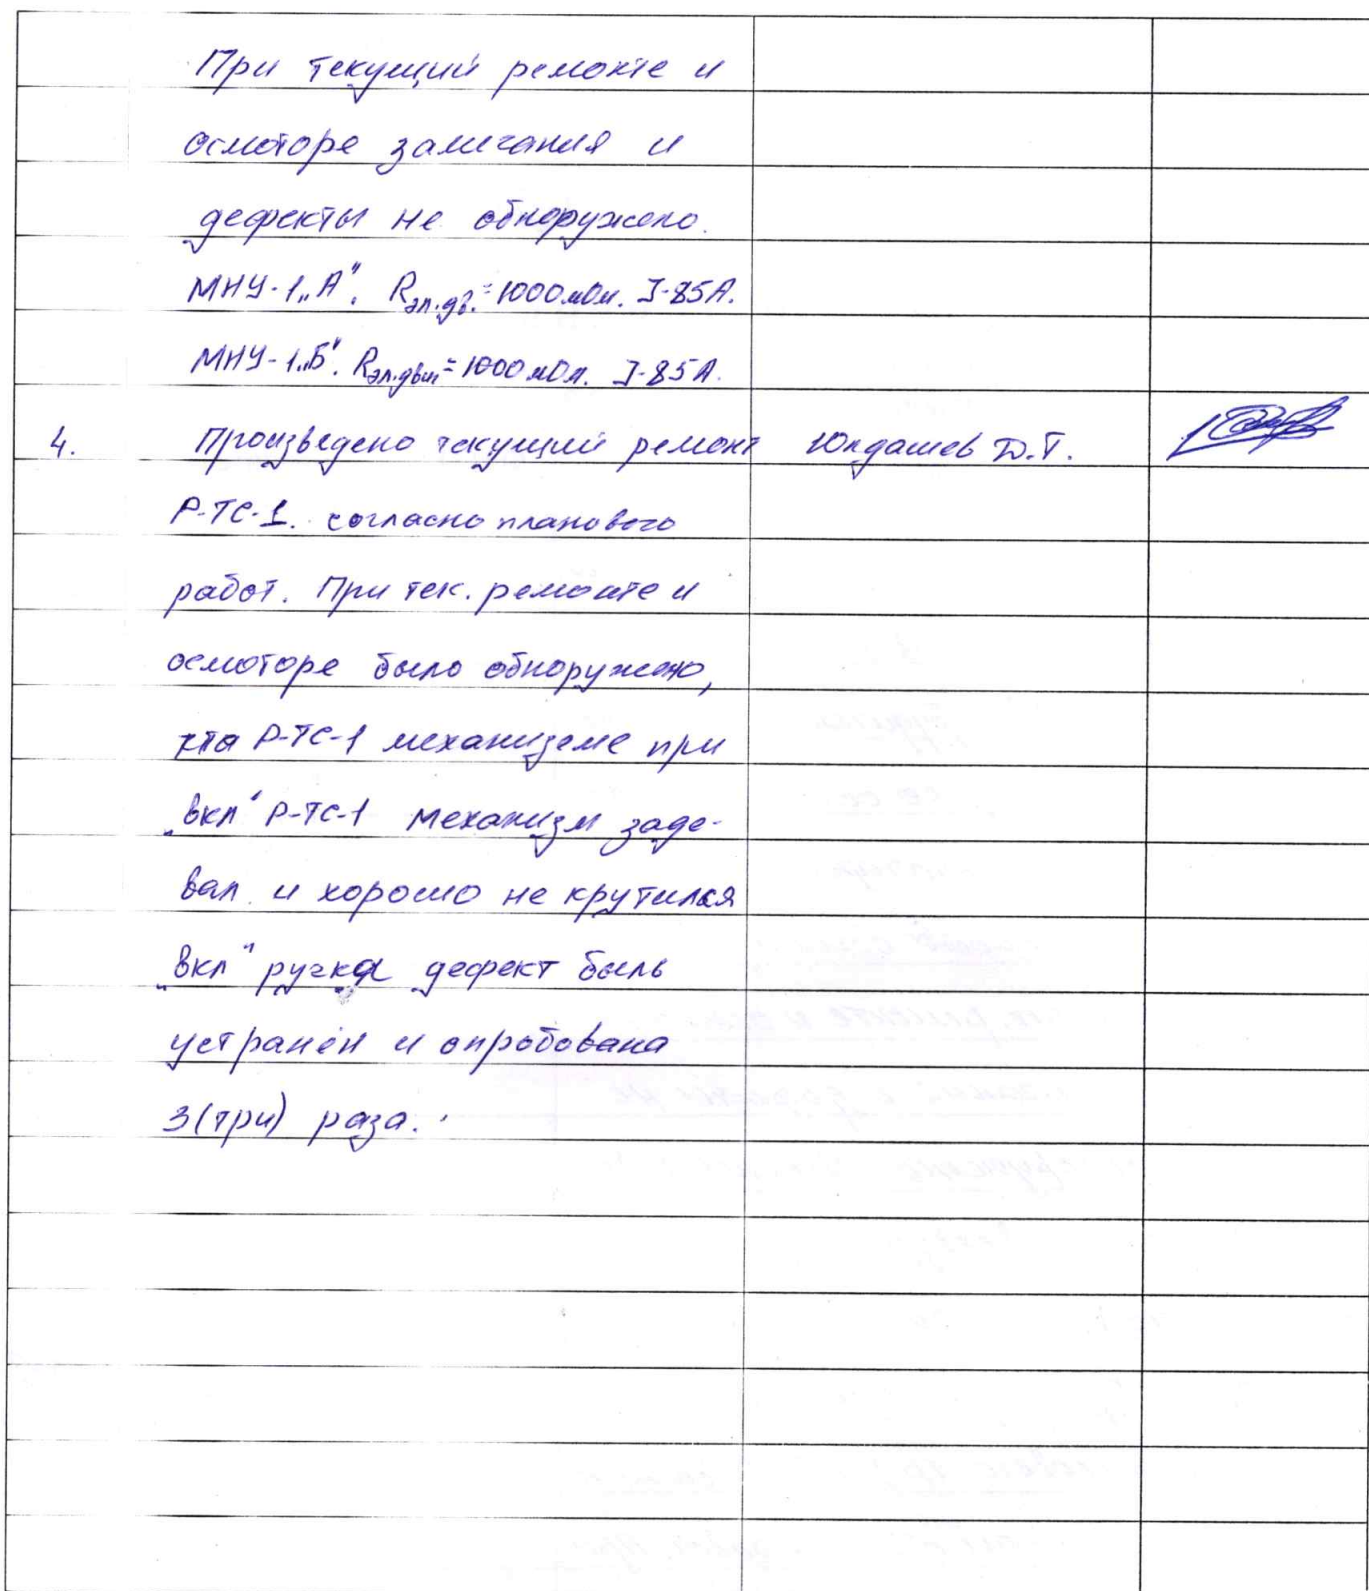 При текущий ремонте и
осмоторе замечания и
дефекты не обноружено.
МНУ-1„А". Rэл.дв.=1000мОм. I-85А.
МНУ-1„Б". Rэл.двиг=1000мОм. I-85А.
4. Произведено текущий ремонт Юлдашев Д.Т.
Р-ТС-1. согласно планового
работ. При тек. ремонте и
осмоторе было обноружено,
что Р-ТС-1 механизме при
„вкл" Р-ТС-1 механизм заде-
вал и хорошо не крутился
„вкл" ручка дефект быль
устранён и опробована
3(три) раза.